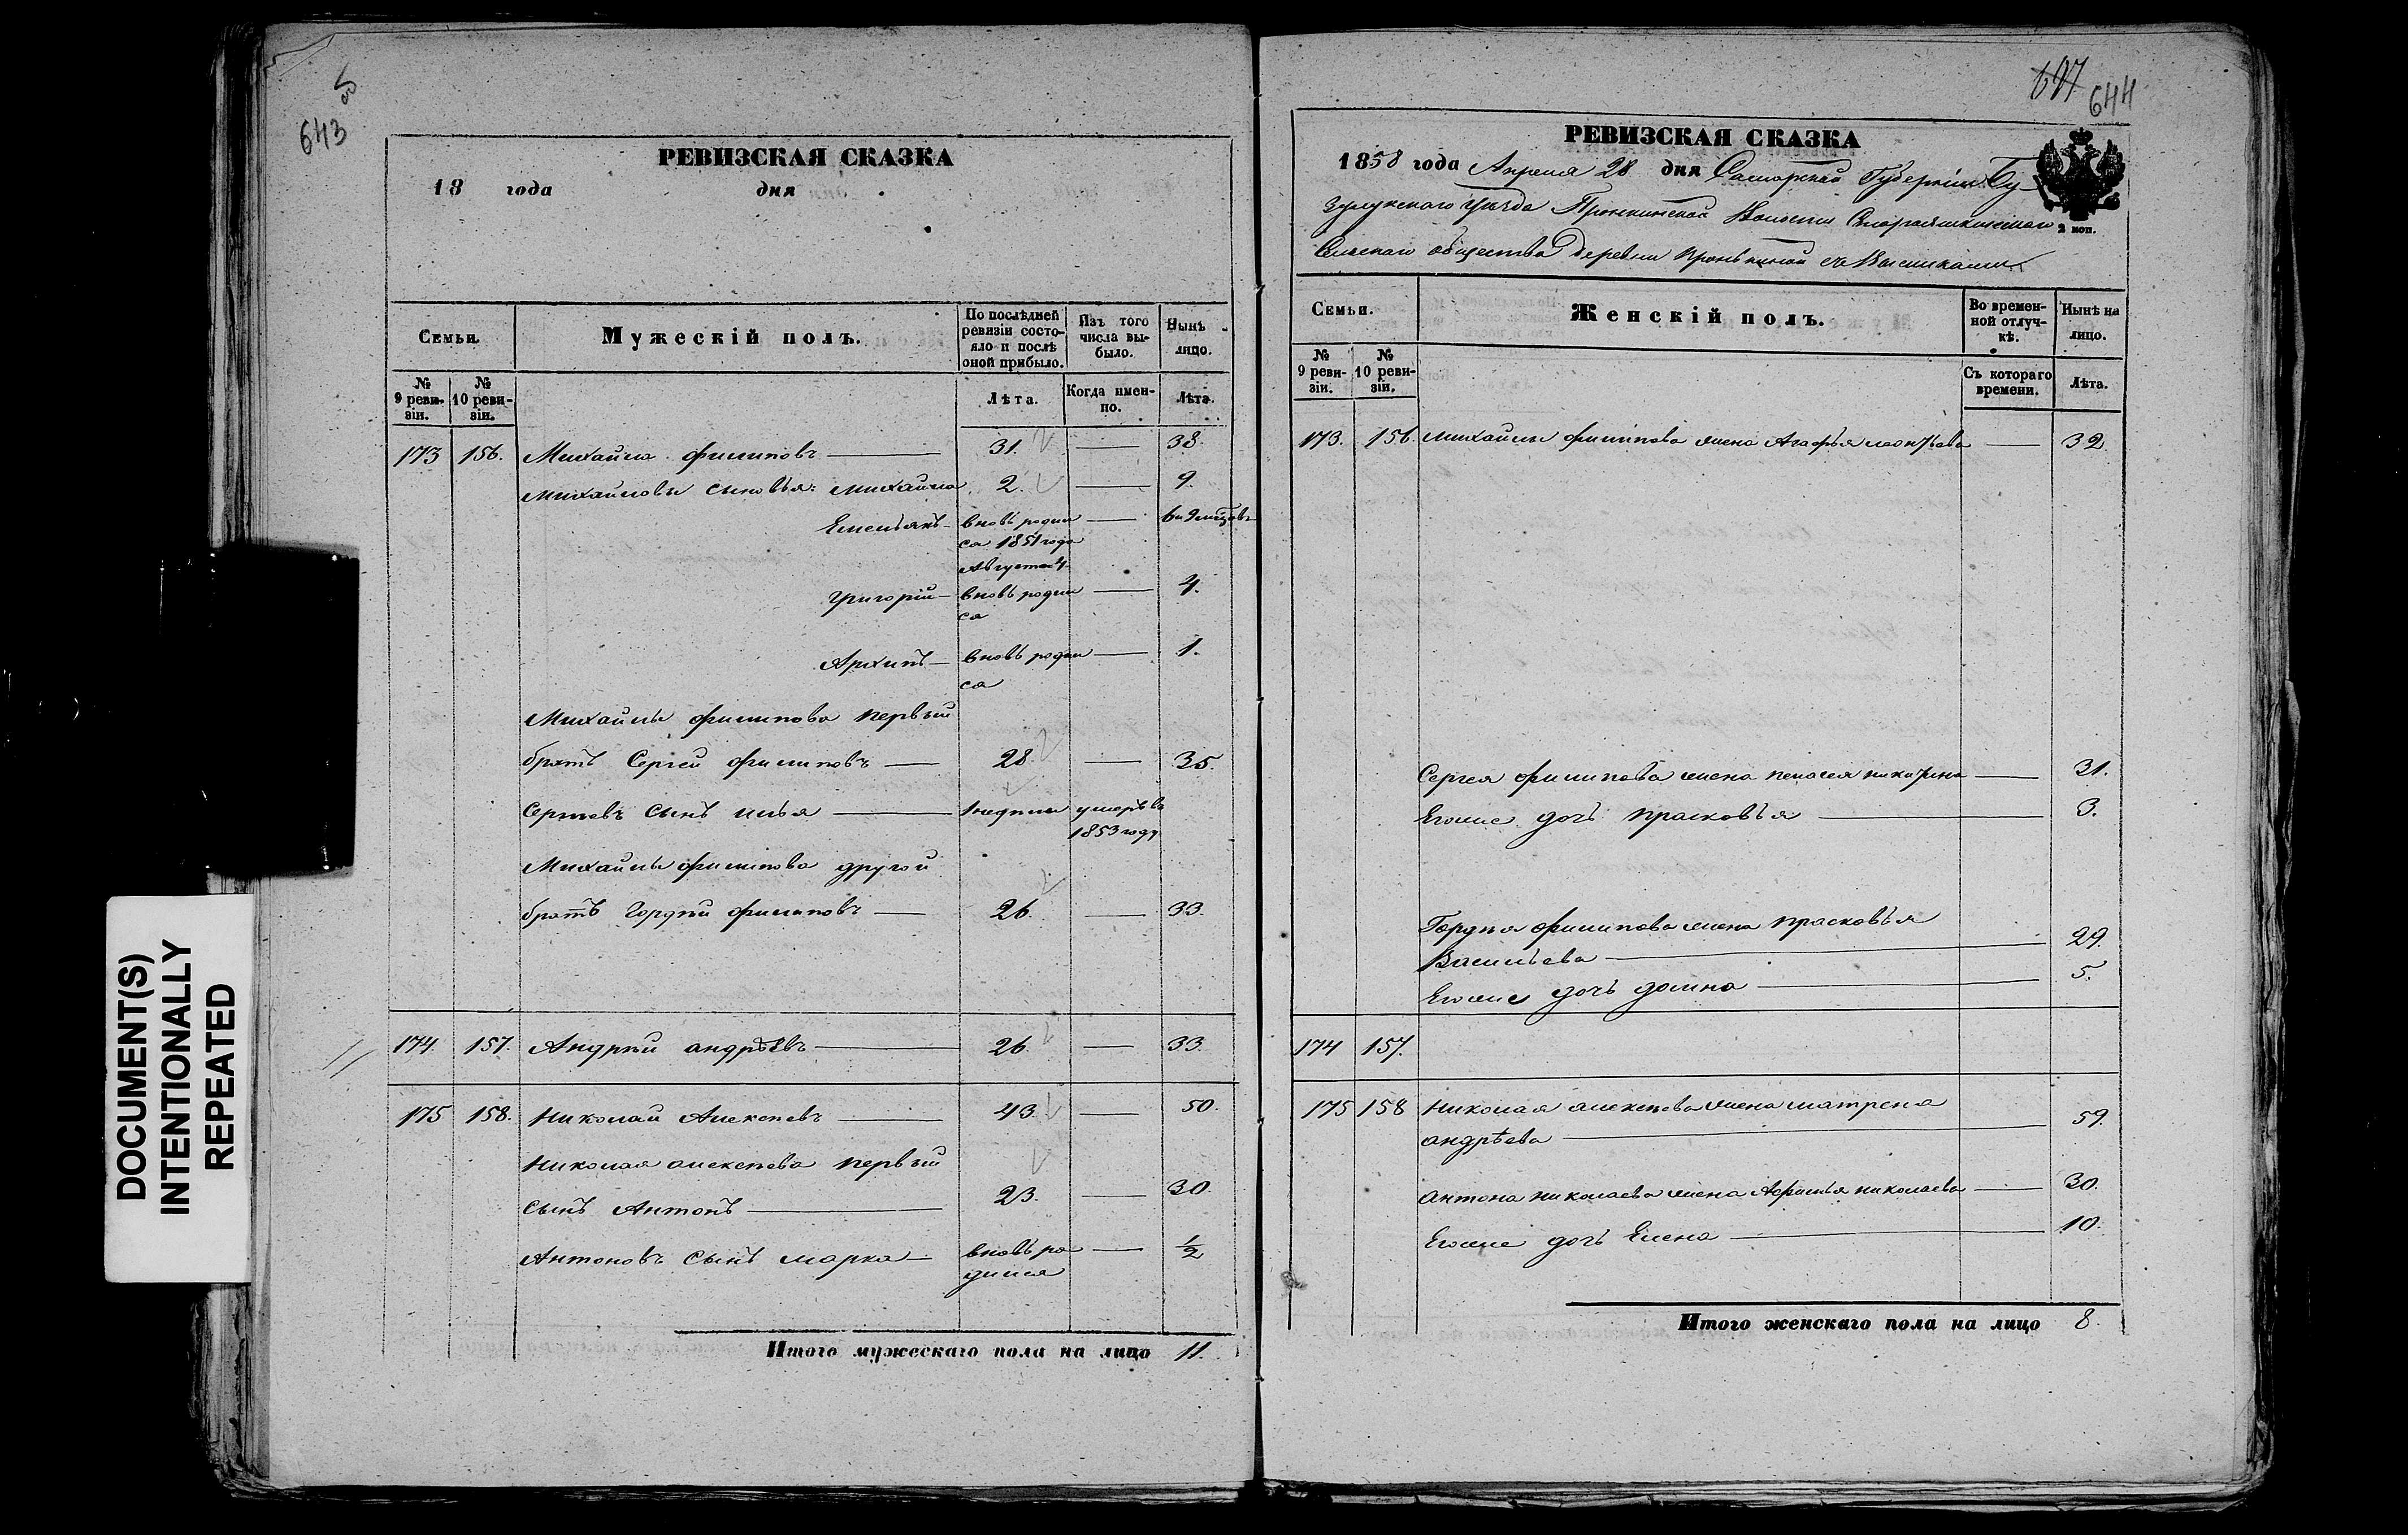 643
РЕВИЗСКАЯ СКАЗКА
18 года дня
Семьи.
Мужескій полъ.
По послѣдней ревизіи состояло и послѣ оной прибыло.
Изъ того числа выбыло.
Нынѣ лицо.
№ 9 ревизіи.
№ 10 ревизіи.
Лѣта.
Когда именно.
Лѣта.
173 156. Михайла филиповъ 31. 38.
Михайловы сыновья: михайла 2. 9.
Емельянъ вновь родил 6 и 9 мцовъ
ся 1851 года
Августа 4
григорій вновь родил 4.
ся
Архипъ вновь родил 1.
ся
Михайлы филипова первый
братъ Сергей филиповъ 28. 35.
Сергѣевъ сынъ илья 1 недѣли умеръ въ
1853 году
Михайлы филипова другой
братъ Гордѣй филиповъ 26. 33.
174. 157. Андрѣй андрѣевъ 26. 33.
175 158. Николай Алексѣевъ 43. 50.
Николая алексѣева первый
сынъ Антонъ 23. 30.
Антоновъ сынъ марка вновь ро ½
дился
Итого мужескаго пола на лицо 11.
644
РЕВИЗСКАЯ СКАЗКА
1858 года Апреля 28 дня Самарской Губерніи Бу-
зулукскаго уѣзда Пронкинской Волости
Сельскаго общества деревни пронькиной съ Выселками
2 коп.
Семьи.
Женскій полъ.
Во временной отлучкѣ.
Нынѣ на лицо.
№ 9 ревизіи.
№ 10 ревизіи.
Съ котораго времени.
Лѣта.
173. 156. михайлы филипова жена Агафья леонтьева 32.
Сергея филипова жена пелагея никитина 31.
Егоже дочь прасковья 3.
Гордѣя филипова жена прасковья
Васильева 29.
Егоже дочь домна 5.
174 157.
175 158 николая алексѣева жена матрена
андрѣева 59.
антона николаева жена Афимья николаева 30.
Егоже дочь Елена 10.
Итого женскаго пола на лицо 8.
DOCUMENT(S)
INTENTIONALLY
REPEATED